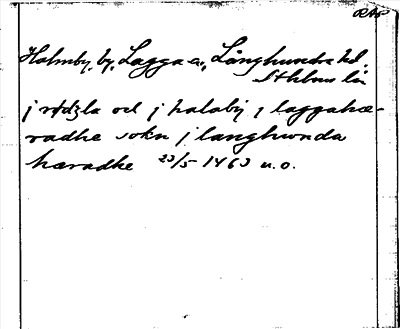 RAp
Holmby, by, Lagga sn, Långhundra hd.
Sthlms län
j rødzla oc j halaby j laggahæ-
radhe sokn j langhunda
hæradhe 23/5 1463 u.o.